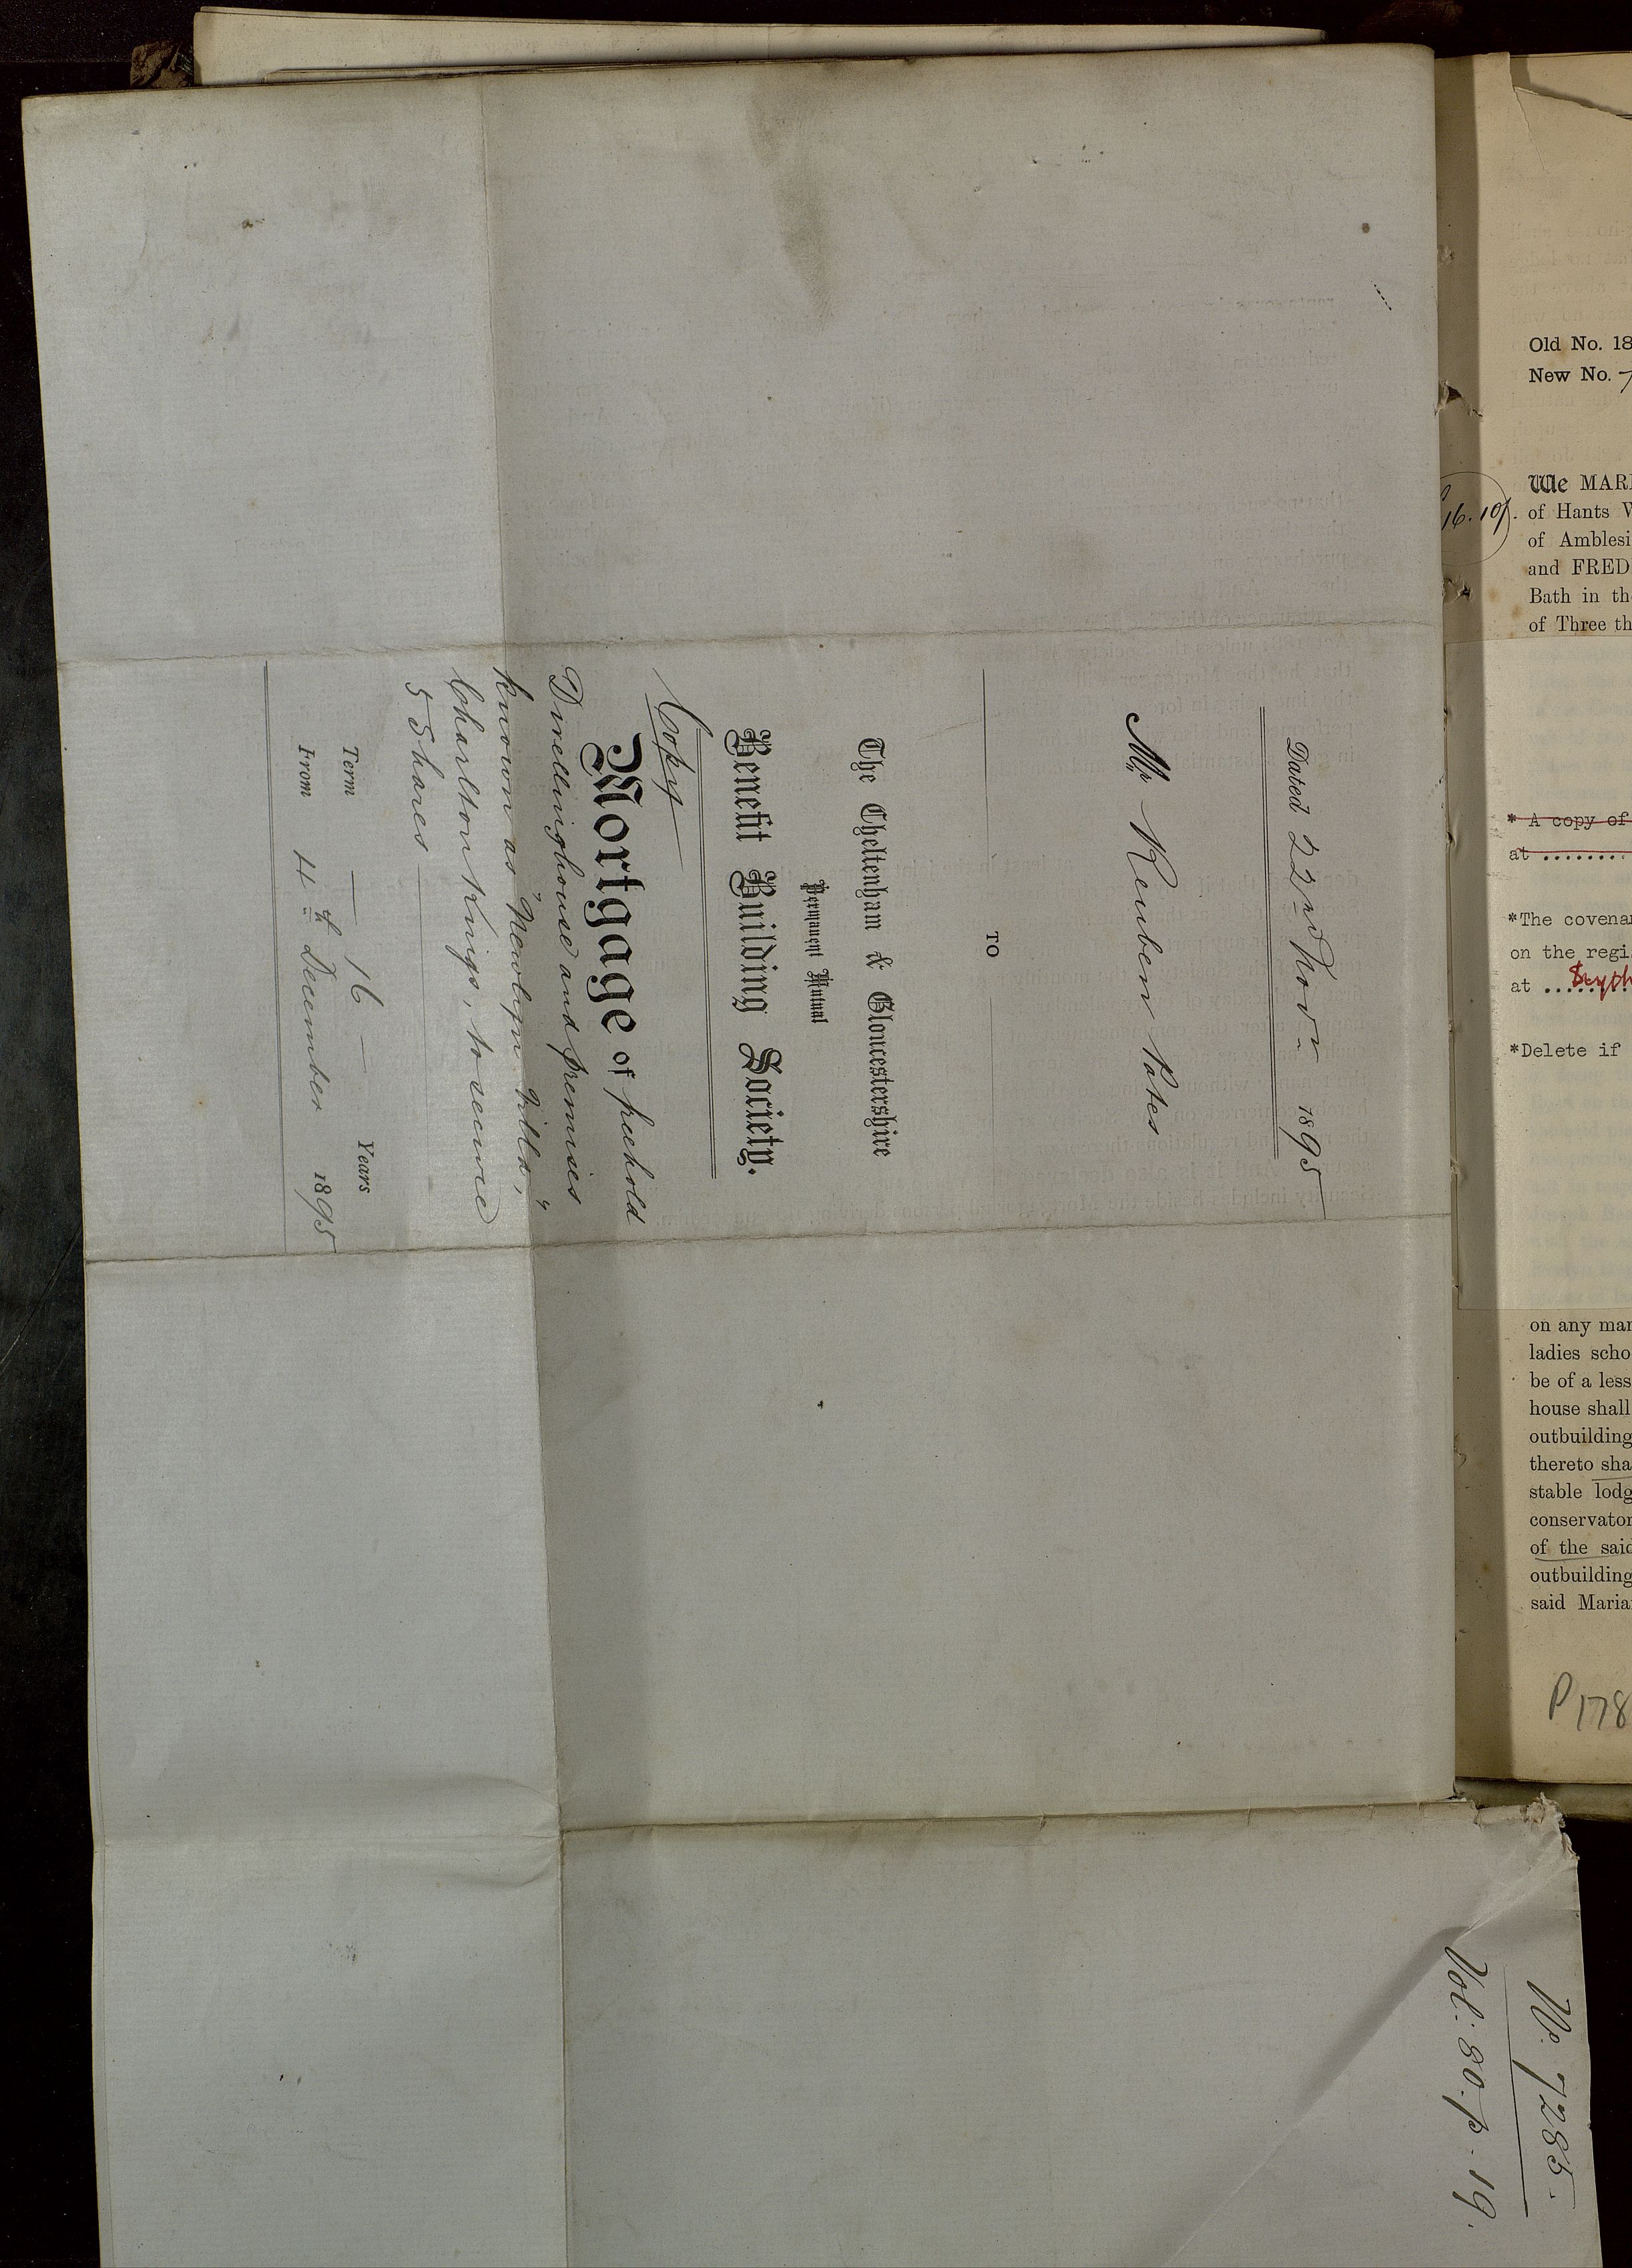 Dated 22nd Novr 1895
Mr Reuben Yates
TO
The Cheltenham & Gloucestershire
Permanent Mutual
Benefit Building Society.
Copy
Mortgage of freehold
Dwellinghouse and premises
known as "Newlyn Villa,"
Charlton Kings, to secure
5 Shares
Term 16 Years
From 4th December 1895
No. 7285.
Vol: 80. p. 19.
Old No. 18
New No. 7
16.10/.
We MARI
of Hants W
of Amblesi
and FRED
Bath in th
of Three th
* A copy of
at ........
*The covena
on the regi
at ........
*Delete if
on any man
ladies scho
be of a less
house shall
outbuilding
thereto sha
stable lodg
conservator
of the said
outbuilding
said Maria
P178